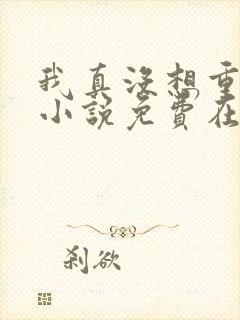 我真没想重
小说免费在
刹欲